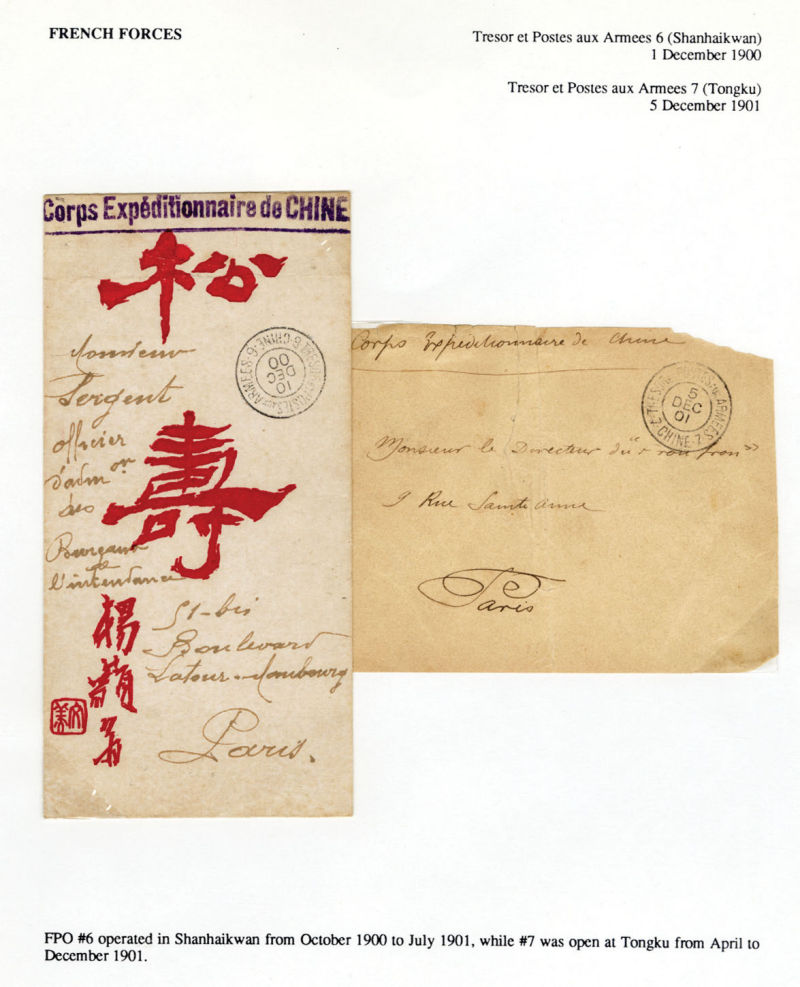 FRENCH FORCES
Tresor et Postes aux Armees 6 (Shanhaikwan)
1 December 1900
Tresor et Postes aux Armees 7 (Tongku)
5 December 1901
Corps Expéditionnaire de CHINE
松
壽
Monsieur
Sergent
officier
d'adm on
des
Bureaux
de
l'intendance
51-bis
Boulevard
Latour-Maubourg
Paris.
TRESOR ET POSTES AUX ARMEES
6 CHINE 6
10
DEC
00
Corps Expéditionnaire de Chine
TRESOR ET POSTES AUX ARMEES
7 CHINE 7
5
DEC
01
Monsieur le Directeur du
9 Rue Sainte Anne
Paris
FPO #6 operated in Shanhaikwan from October 1900 to July 1901, while #7 was open at Tongku from April to
December 1901.